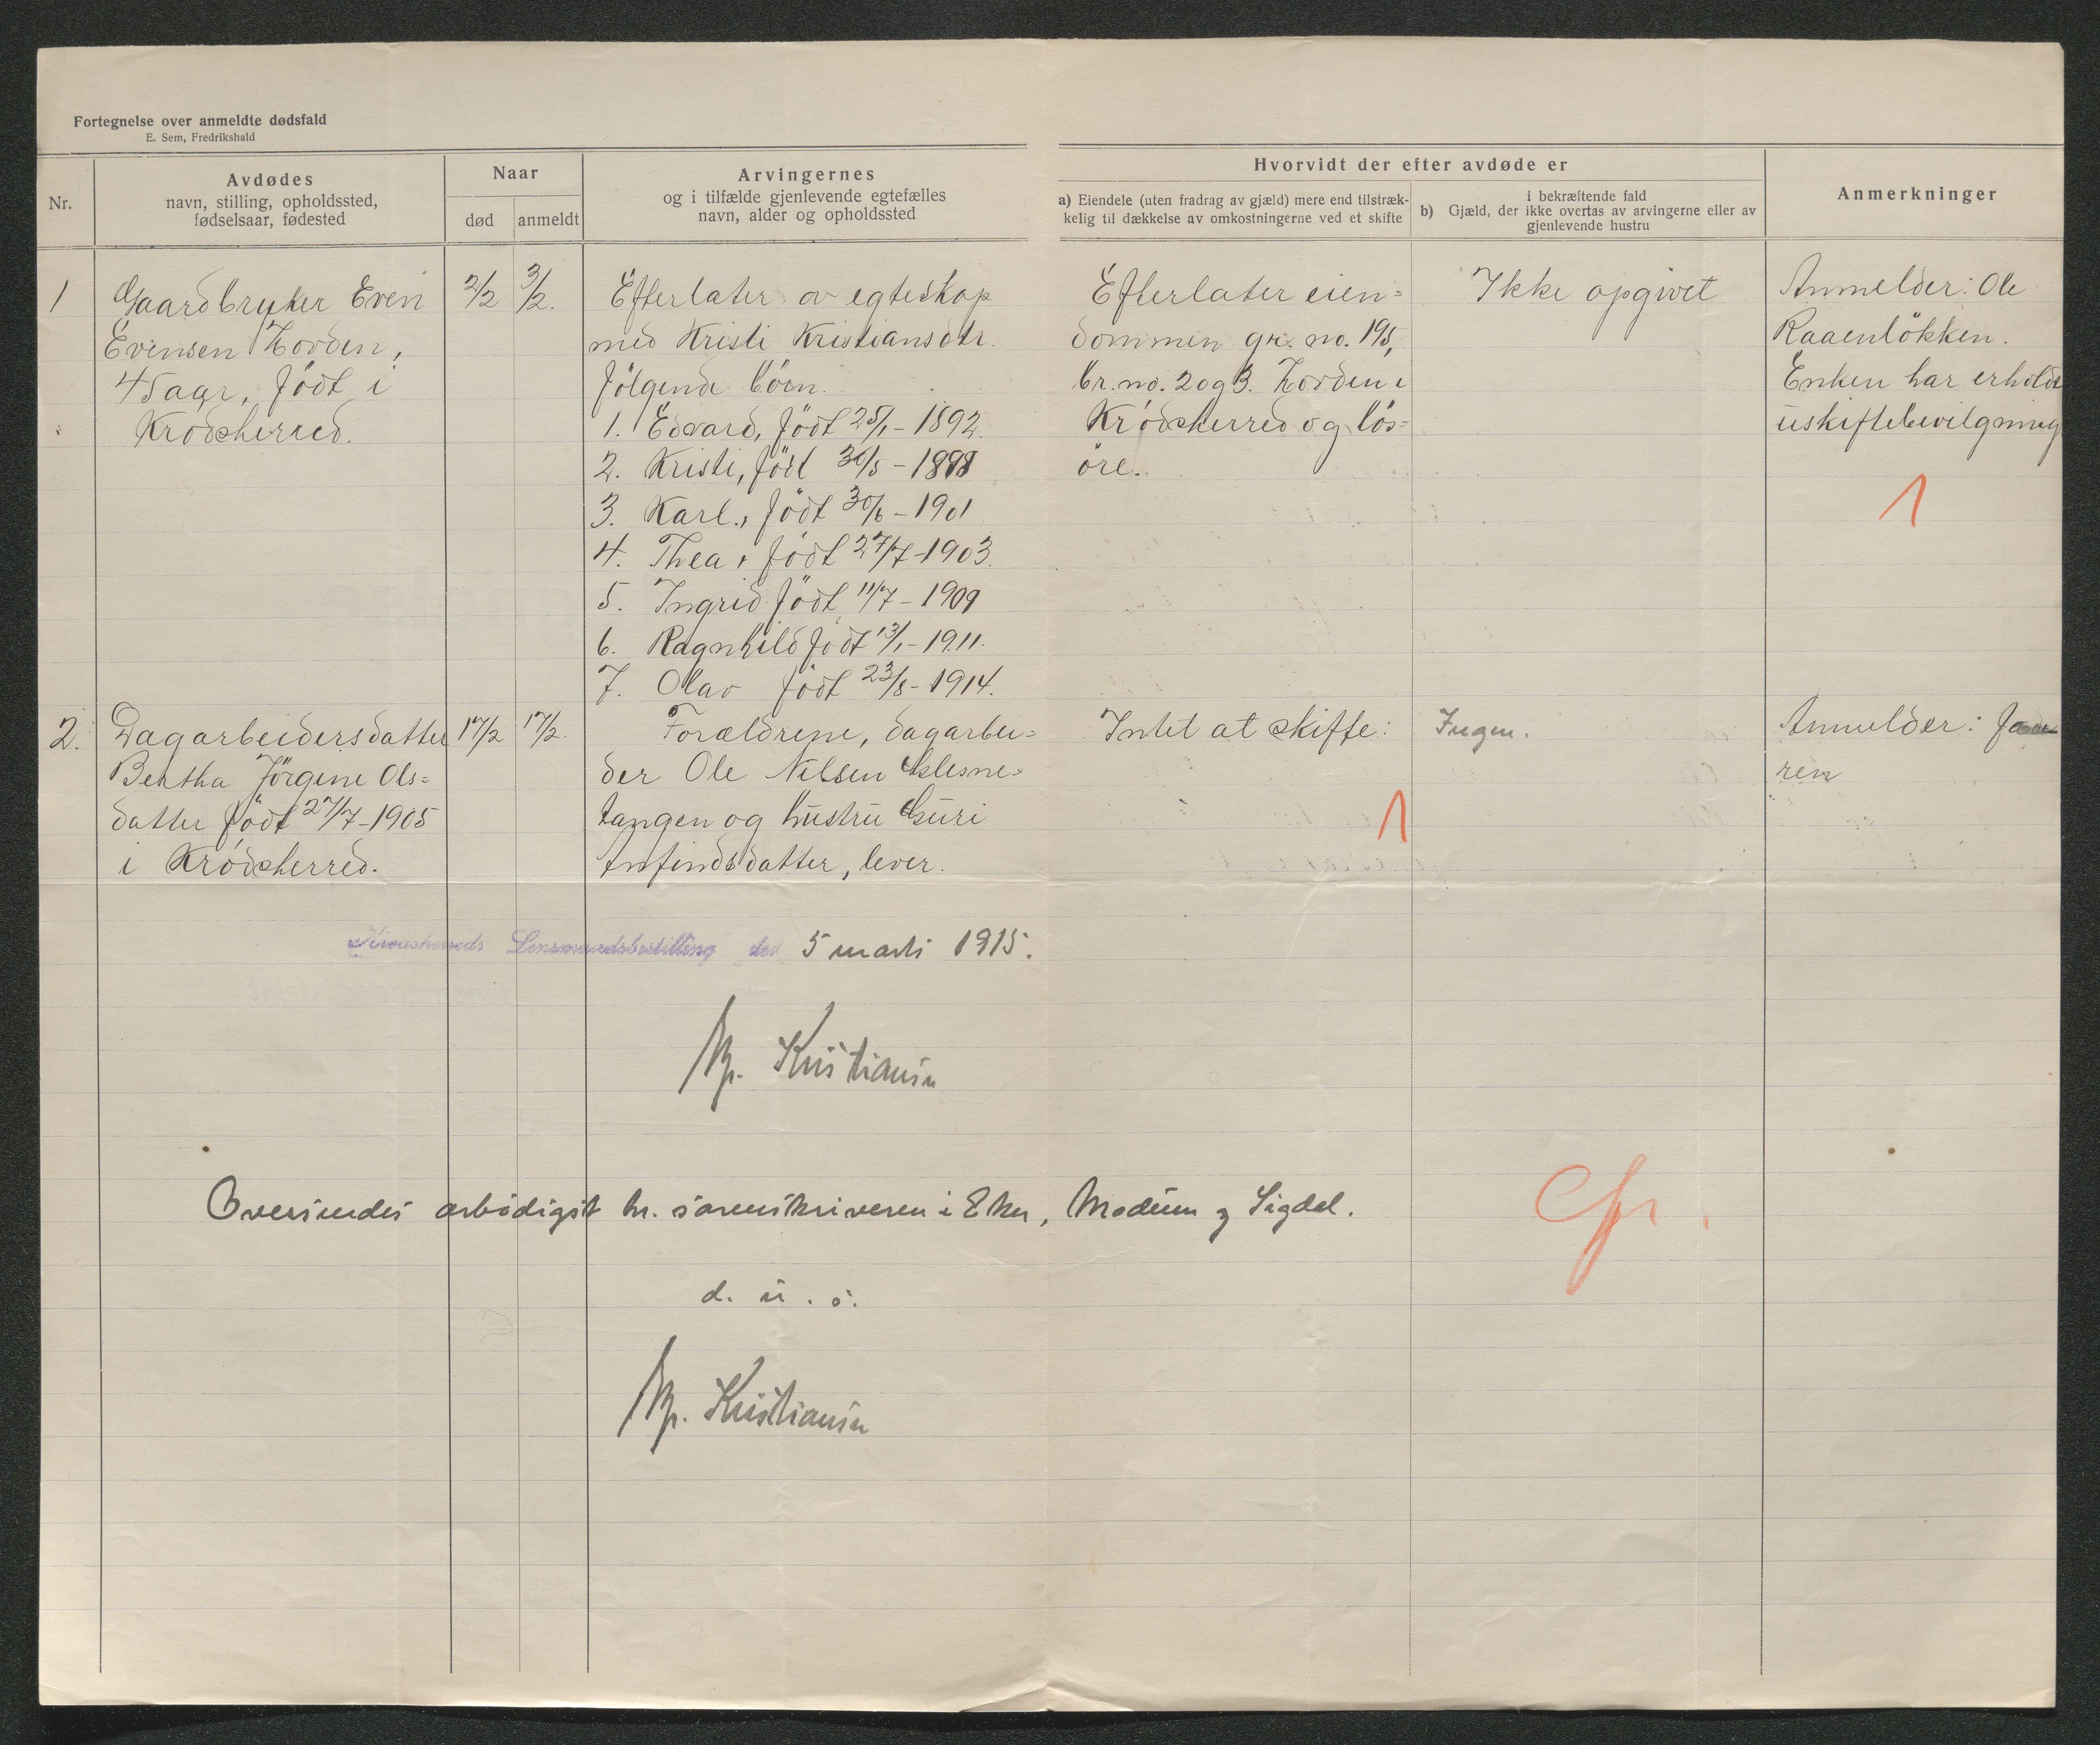 Fortegnelse over anmeldte dødsfald
E. Sem, Fredrikshald
Nr.
Avdødes
navn, stilling, opholdssted,
fødselsaar, fødested
Naar
død
anmeldt
Arvingernes
og i tilfælde gjenlevende egtefælles
navn, alder og opholdssted
Hvorvidt der efter avdøde er
a) Eiendele (uten fradrag av gjæld) mere end tilstræk-
kelig til dækkelse av omkostningerne ved et skifte
i bekræftende fald
b) Gjæld, der ikke overtas av arvingerne eller av
gjenlevende hustru
Anmerkninger
1
Gaardbruker Even
Evensen
45 aar, født i
Krødsherred.
2/2
3/2.
Efterlater av egteskap
med Kristi Kristiansdtr.
følgende børn.
1. Edvard, født 25/1-1892.
2. Kristi, født 30/5-1898
3. Karl, født 30/6-1901
4. Thea, født 27/7-1903.
5. Ingrid født 11/7-1909
6. Ragnhild født 13/1-1911.
7. Olav født 23/8-1914.
Efterlater eien=
dommen gr. no. 195,
br. no. 2 og 3. i
Krødsherred og løs=
øre.
Ikke opgivet
Anmelder: Ole
Raaenløkken.
Enken har erholdt
uskiftebevilgning
1
2.
Dagarbeidersdatter
Bertha Jørgine Ols=
datter født 27/7-1905
i Krødsherred.
17/2
17/2.
Forældrene, dagarbei=
der Ole Nilsen Glesne=
tangen og hustru Guri
Anfindsdatter, lever.
Intet at skifte:
1
Ingen.
Anmelder: Fa
ren
Krødsherreds Lensmandsbestilling den 5 marts 1915.
Kristiansen
Oversendes ærbødigst hr. sorenskriveren i Eker, Modum og Sigdal.
d. u. s.
Kristiansen